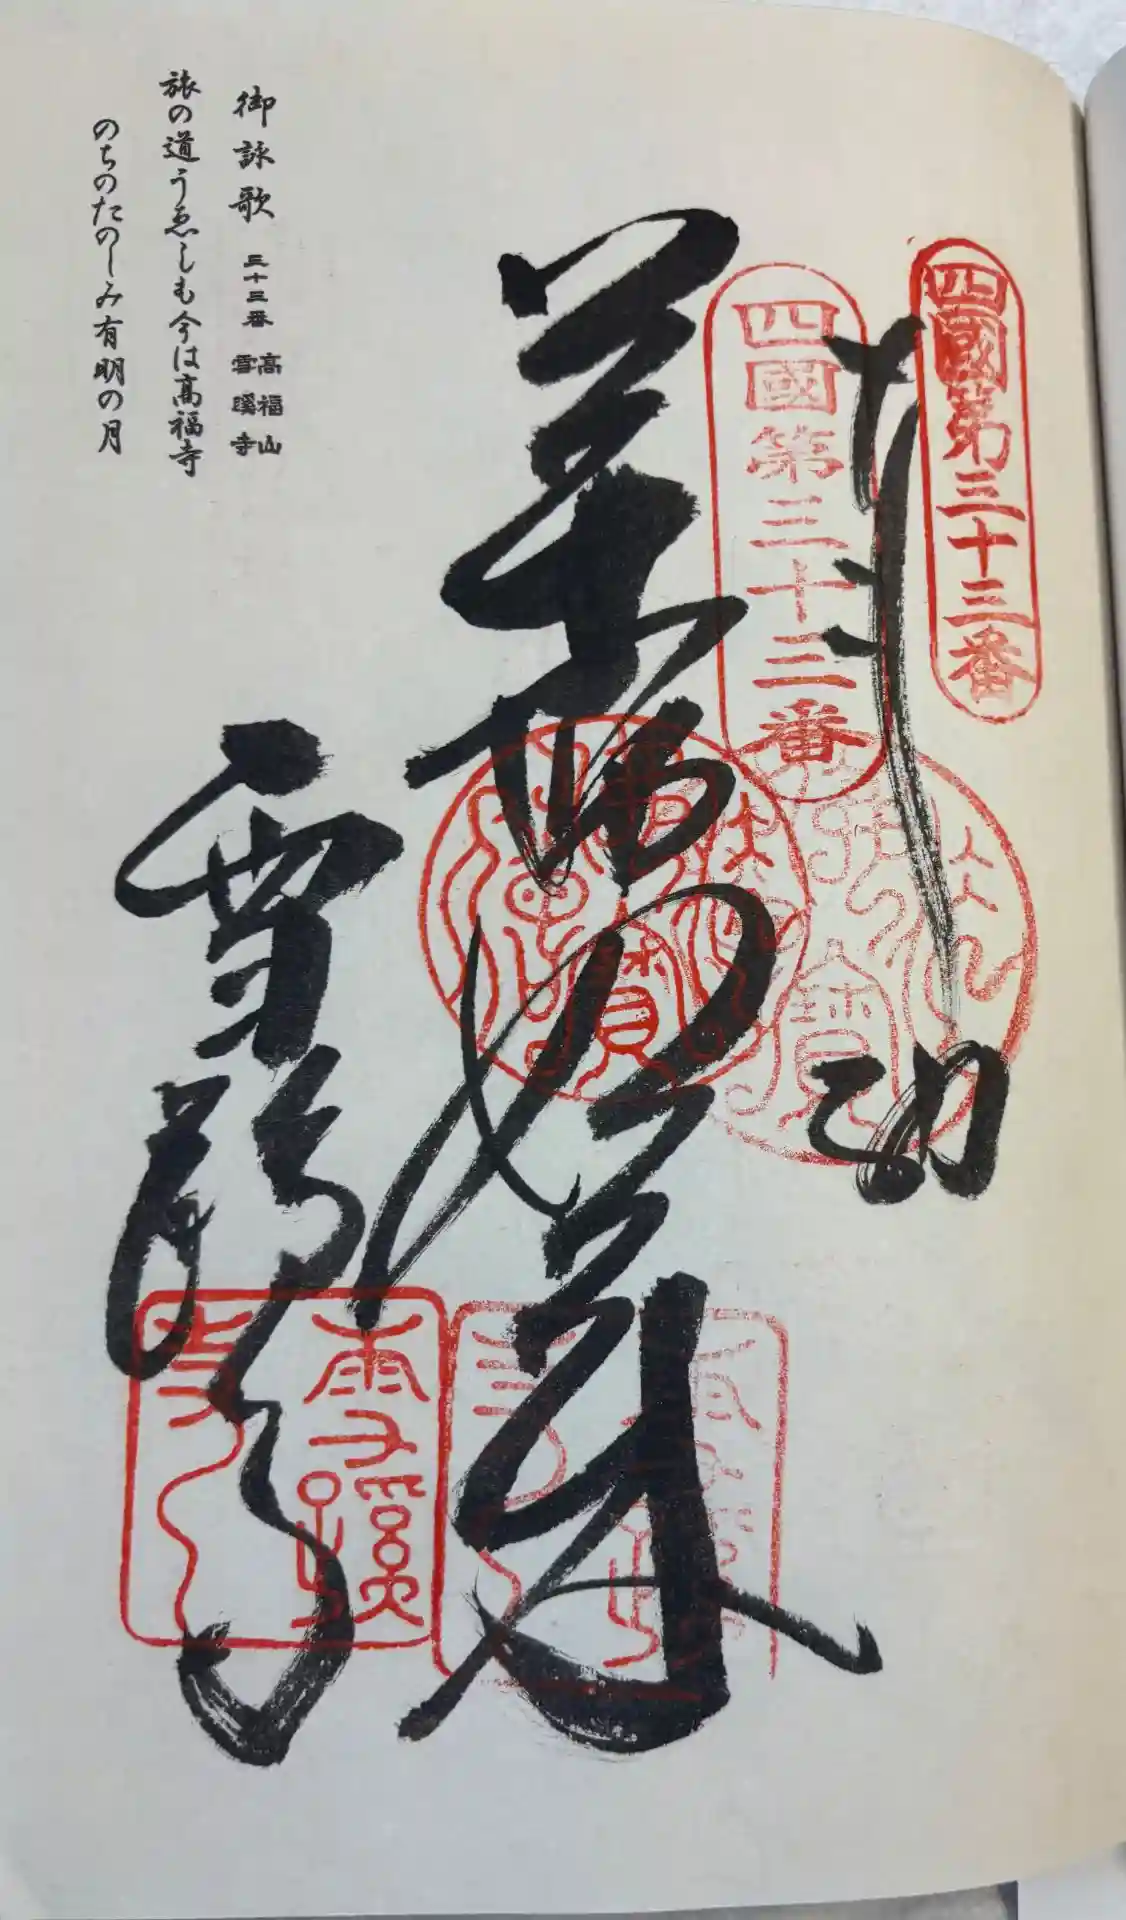 四國第三十三番
四國第三十三番
奉納
薬師如来
雪蹊寺
雪蹊寺
御詠歌 三十三番 高福山 雪蹊寺
旅の道うゑしも今は高福寺
のちのたのしみ有明の月